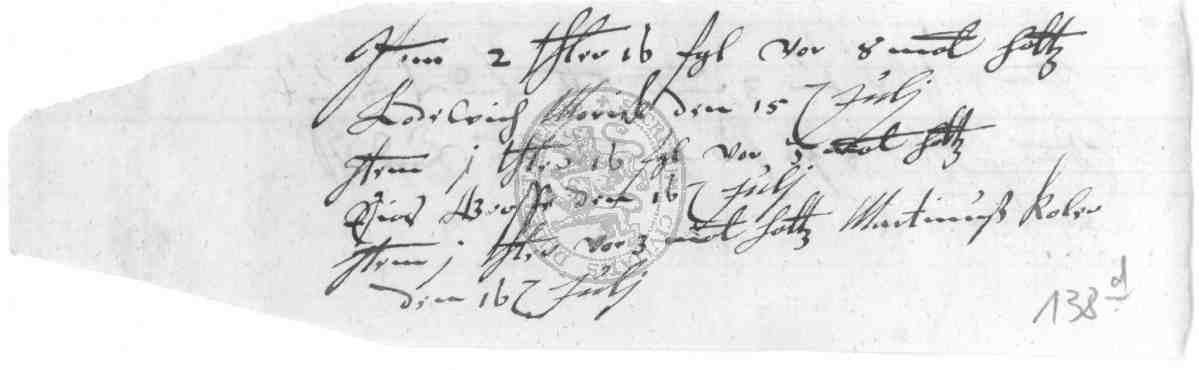 Item 2 thler 16 sgl vor 8 mol holtz
Lodewich Morich den 15 Julj
Item j thler 16 sgl vor 5 mol holtz
Grosse den 16 Julj
Item j thler vor 3 mol holtz Martinuß Koler
den 16 Julj
138d